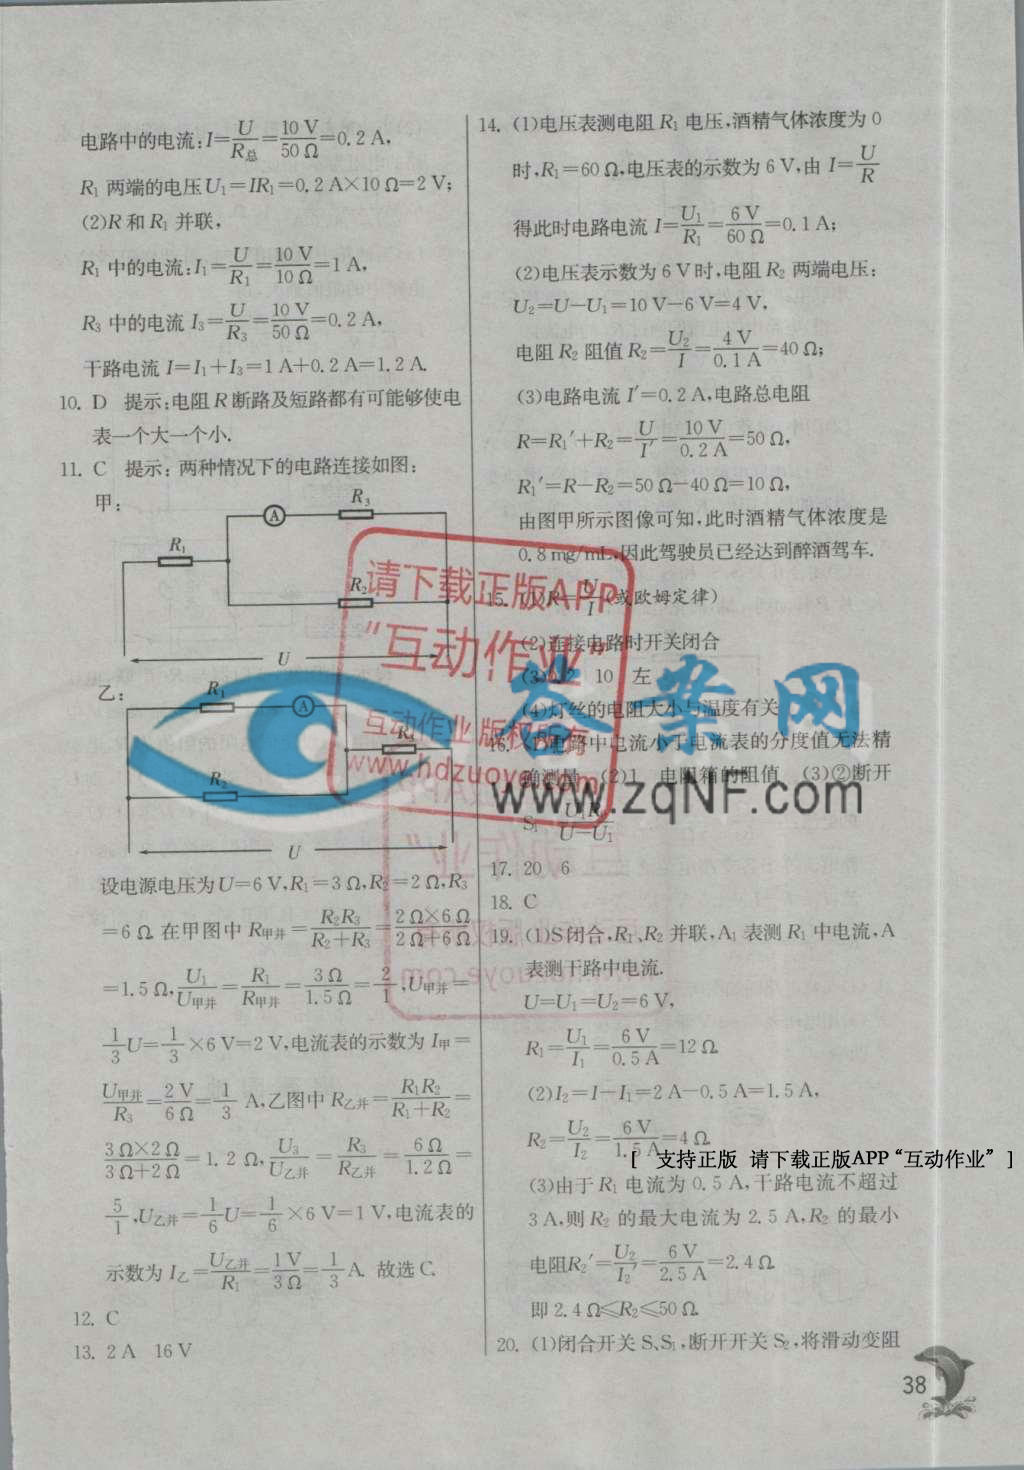 电路中的电流:I=U/R总=10 V/50 Ω=0.2 A,
R₁ 两端的电压U₁=IR₁=0.2 A×10 Ω=2 V;
(2)R 和 R₁ 并联,
R₁ 中的电流:I₁=U/R₁=10 V/10 Ω=1 A,
R₃ 中的电流 I₃=U/R₃=10 V/50 Ω=0.2 A,
干路电流 I=I₁+I₃=1 A+0.2 A=1.2 A.
10. D 提示:电阻 R 断路及短路都有可能够使电
表一个大一个小.
11. C 提示:两种情况下的电路连接如图:
甲:
R₁ A R₃
R₂
U
乙:
R₁ A
R₂
U
设电源电压为 U=6 V,R₁=3 Ω,R₂=2 Ω,R₃
=6 Ω. 在甲图中 R甲并=R₂R₃/(R₂+R₃)=(2 Ω×6 Ω)/(2 Ω+6 Ω)
=1.5 Ω,U₁/U甲并=R₁/R甲并=3 Ω/1.5 Ω=2/1,U甲并=
1/3U=1/3×6 V=2 V,电流表的示数为 I甲=
U甲并/R₃=2 V/6 Ω=1/3 A,乙图中 R乙并=R₁R₂/(R₁+R₂)=
(3 Ω×2 Ω)/(3 Ω+2 Ω)=1.2 Ω,U₃/U乙并=R₃/R乙并=6 Ω/1.2 Ω=
5/1,U乙并=1/6U=1/6×6 V=1 V,电流表的
示数为 I乙=U乙并/R₁=1 V/3 Ω=1/3 A. 故选 C.
12. C
13. 2 A 16 V
14. (1)电压表测电阻 R₁ 电压,酒精气体浓度为 0
时,R₁=60 Ω,电压表的示数为 6 V,由 I=U/R
得此时电路电流 I=U₁/R₁=6 V/60 Ω=0.1 A;
(2)电压表示数为 6 V 时,电阻 R₂ 两端电压:
U₂=U-U₁=10 V-6 V=4 V,
电阻 R₂ 阻值 R₂=U₂/I=4 V/0.1 A=40 Ω;
(3)电路电流 I′=0.2 A,电路总电阻
R=R₁′+R₂=U/I′=10 V/0.2 A=50 Ω,
R₁′=R-R₂=50 Ω-40 Ω=10 Ω,
由图甲所示图像可知,此时酒精气体浓度是
0.8 mg/mL,因此驾驶员已经达到醉酒驾车.
15. (1)R=U/I(或欧姆定律)
(2)连接电路时开关闭合
(3) 10 左
(4)灯丝的电阻大小与温度有关
16. (1)电路中电流小于电流表的分度值无法精
确测量 (2)1 电阻箱的阻值 (3)②断开
S₁
17. 20 6
18. C
19. (1)S闭合,R₁、R₂ 并联,A₁ 表测 R₁ 中电流,A
表测干路中电流.
U=U₁=U₂=6 V,
R₁=U₁/I₁=6 V/0.5 A=12 Ω.
(2)I₂=I-I₁=2 A-0.5 A=1.5 A,
R₂=U₂/I₂=6 V/1.5 A=4 Ω.
(3)由于 R₁ 电流为 0.5 A,干路电流不超过
3 A,则 R₂ 的最大电流为 2.5 A,R₂ 的最小
电阻R₂′=U₂/I₂′=6 V/2.5 A=2.4 Ω.
即 2.4 Ω≤R₂≤50 Ω.
20. (1)闭合开关 S、S₁,断开开关 S₂,将滑动变阻
38
请下载正版APP
“互动作业”
互动作业 版权所有
www.hdzuoye.com
答案网
www.zqNF.com
[ 支持正版 请下载正版APP“互动作业” ]